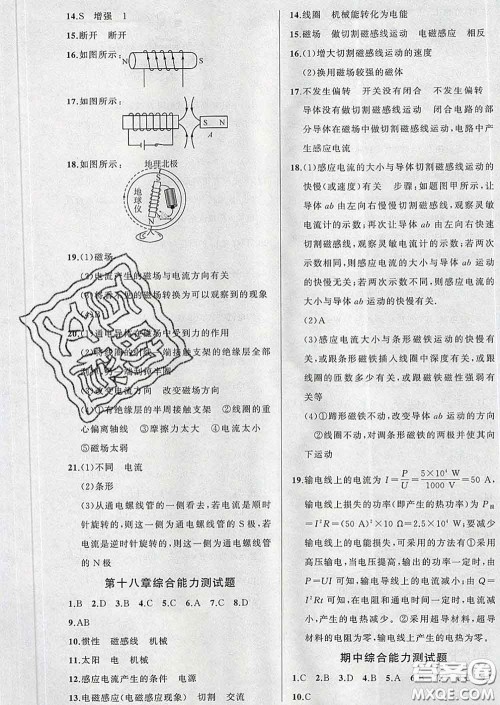 14.S 增强 1
15.断开 断开
16.如图所示:
N
S
17.如图所示:
S
N
A
18.如图所示:
地理北极
地球仪
19.(1)磁场
电流产生的磁场与电流方向有关
转换为可以观察到的现象
20.(1)通电导体在磁场中受到力的作用
一端接触支架的绝缘层全部
改变电流方向 改变磁场方向
有绝缘层的半周接触支架 ②线圈的重
心偏离轴线 ③摩擦力太大 ④电流太小
⑤磁场太弱
21.(1)不同 电流
(2)条形
(3)从通电螺线管的一侧看去,电流是按顺时
针旋转的,则这一侧为通电螺线管的 S 极,若
电流是逆时针旋转的,则这一侧为通电螺线管
的 N 极
第十八章综合能力测试题
1.B 2.D 3.B 4.C 5.A 6.C 7.C 8.D
9.AB
10.惯性 磁感线 机械
11.太阳 电 机械
12.交流 0.02
13.电磁感应(电磁感应现象) 切割 交流
14.线圈 机械能转化为电能
15.磁场 做切割磁感线运动 电磁感应 相反
16.(1)增大切割磁感线运动的速度
(2)换用磁场较强的磁体
17.不发生偏转 开关没有闭合 不发生偏转
导体没有做切割磁感线运动 闭合电路的部
分导体在磁场中做切割磁感线运动,电路中产
生感应电流
18.(1)感应电流的大小与导体切割磁感线运动的
快慢(或速度)有关 步骤:如题图甲所示,让
导体 ab 由左向右慢慢切割磁感线,观察灵敏
电流计的示数;再次让导体 ab 由左向右快速
切割磁感线,观察灵敏电流计的示数;若两次
示数相同,则感应电流的大小与导体 ab 运动
的快慢无关;若两次示数不同,则感应电流的
大小与导体 ab 运动的快慢有关.
(2)A
(3)感应电流的大小与条形磁铁运动速度有关,
或跟条形磁铁插入线圈中深度有关,或跟
线圈的匝数多少有关,或跟磁铁磁性强弱有
关等
(4)①蹄形磁铁不动,改变导体 ab 运动的方向
②磁体不动,对调条形磁铁的两极并使其向
下运动
19.输电线上的电流为 I=P/U=5×10⁴ W/1000 V=50 A,
输电线上损失的功率(即产生的热功率)为 P损=
I²R=(50 A)²×10 Ω=2.5×10⁴ W;要减少
输电线损失的功率,可采用的方法有①采用
高压输电,当电压提高,输出功率一定时,由
P=UI 可知,输电线上的电流减小;由 Q=
I²Rt 可知,在电阻和通电时间一定时,电流减
小,产生的电热减小.②采用超导材料,超导
材料的电阻为零,输电线上产生的电热为零.
期中综合能力测试题
10.C
答案圈
MXQE.COM